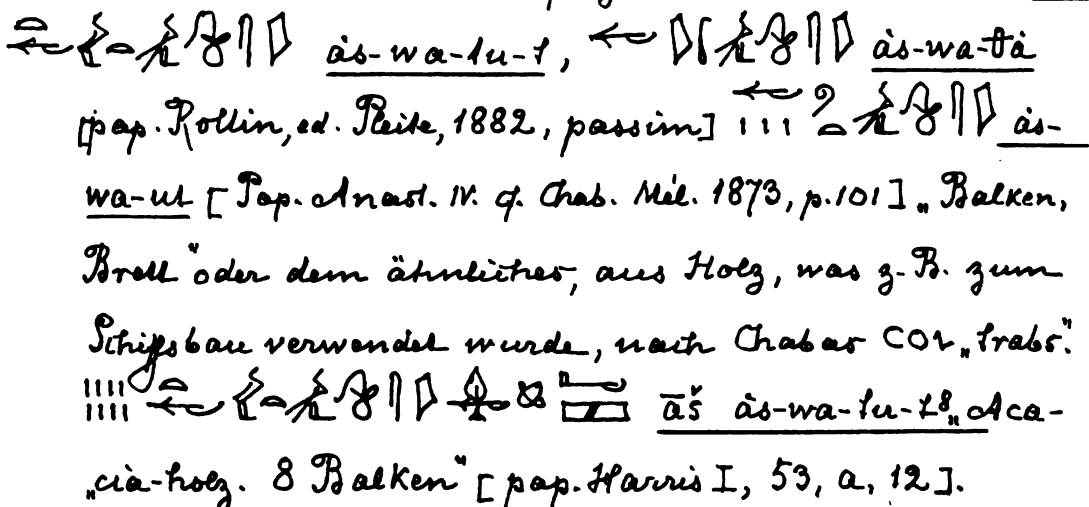 ȧs-wa-tu-t, ȧs-wa-tȧ
[pap. Rollin, ed. Pleite, 1882, passim] ȧs-
wa-ut [Pap. Anast. IV. cf. Chab. Mél. 1873, p. 101] „Balken,
Brett" oder dem ähnliches, aus Holz, was z. B. zum
Schiffsbau verwendet wurde, nach Chabas COI „trabs."
āš ȧs-wa-tu-t 8 „Aca-
„cia-holz. 8 Balken" [pap. Harris I, 53, a, 12].